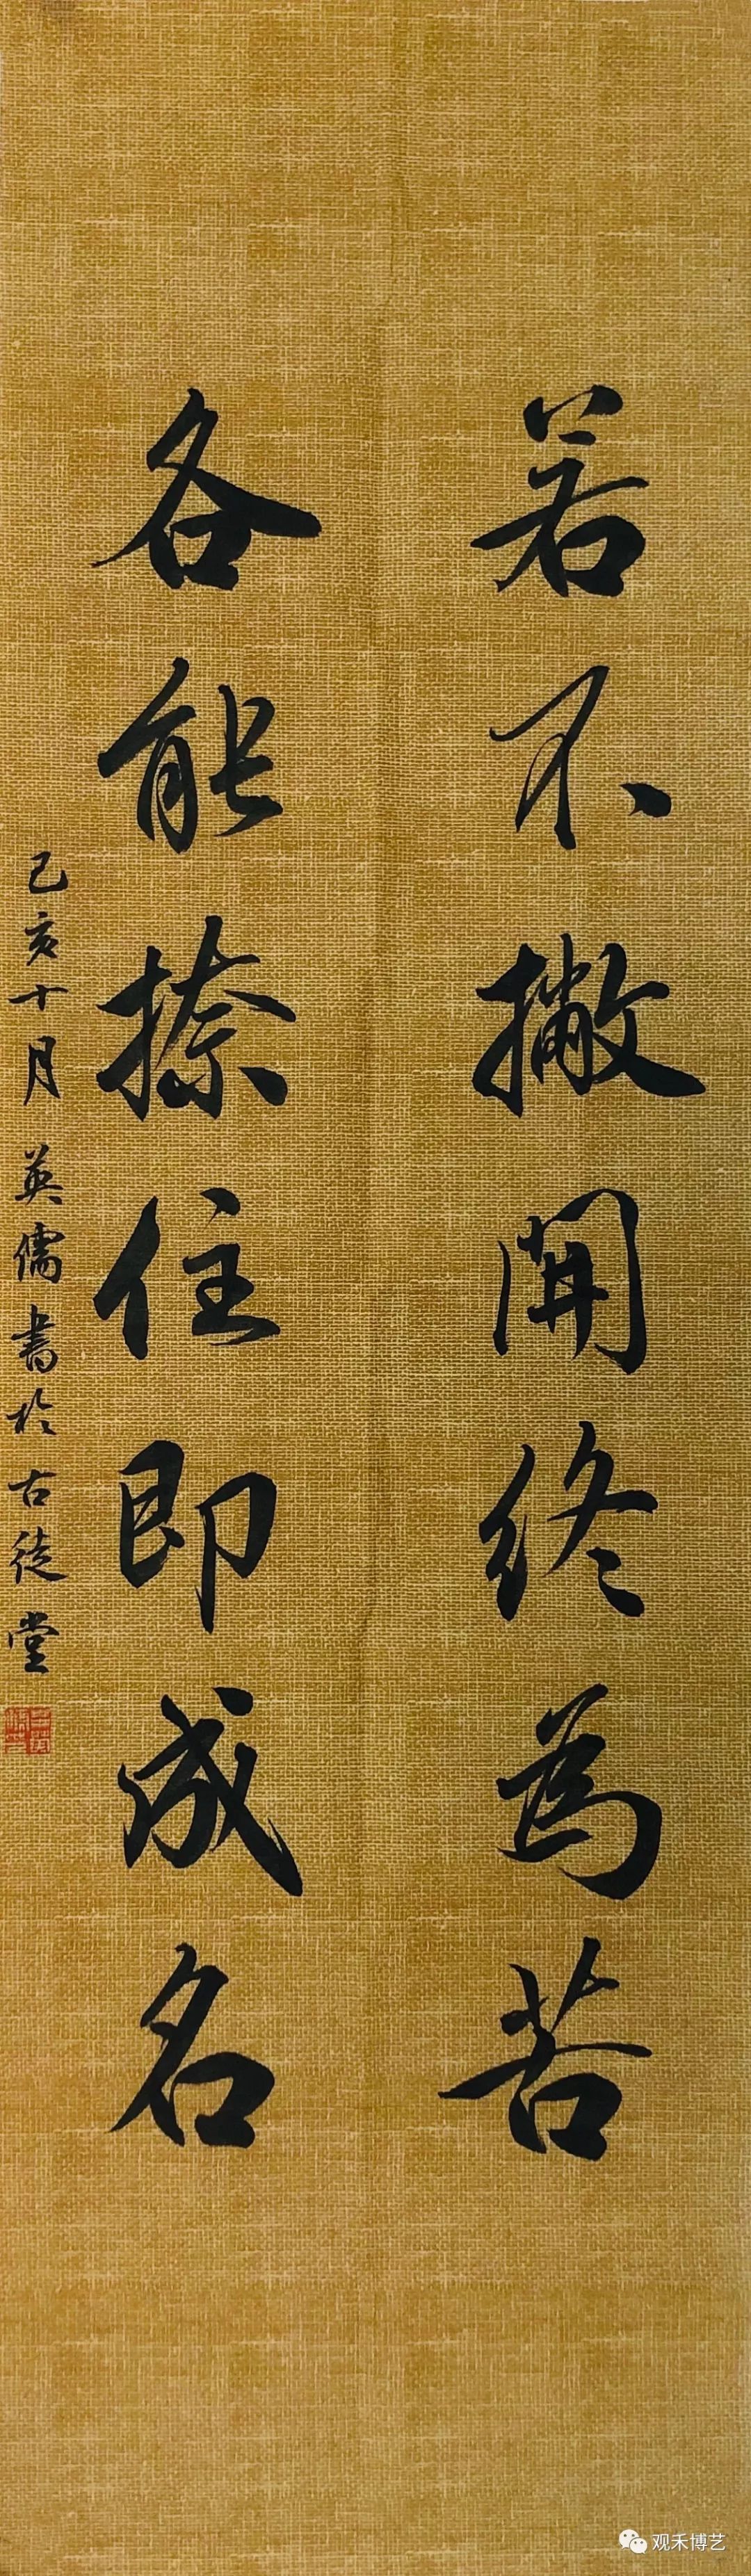 若不撇開终為苦
各能捺住即成名
己亥十月英儒書於古徒堂
观禾博艺